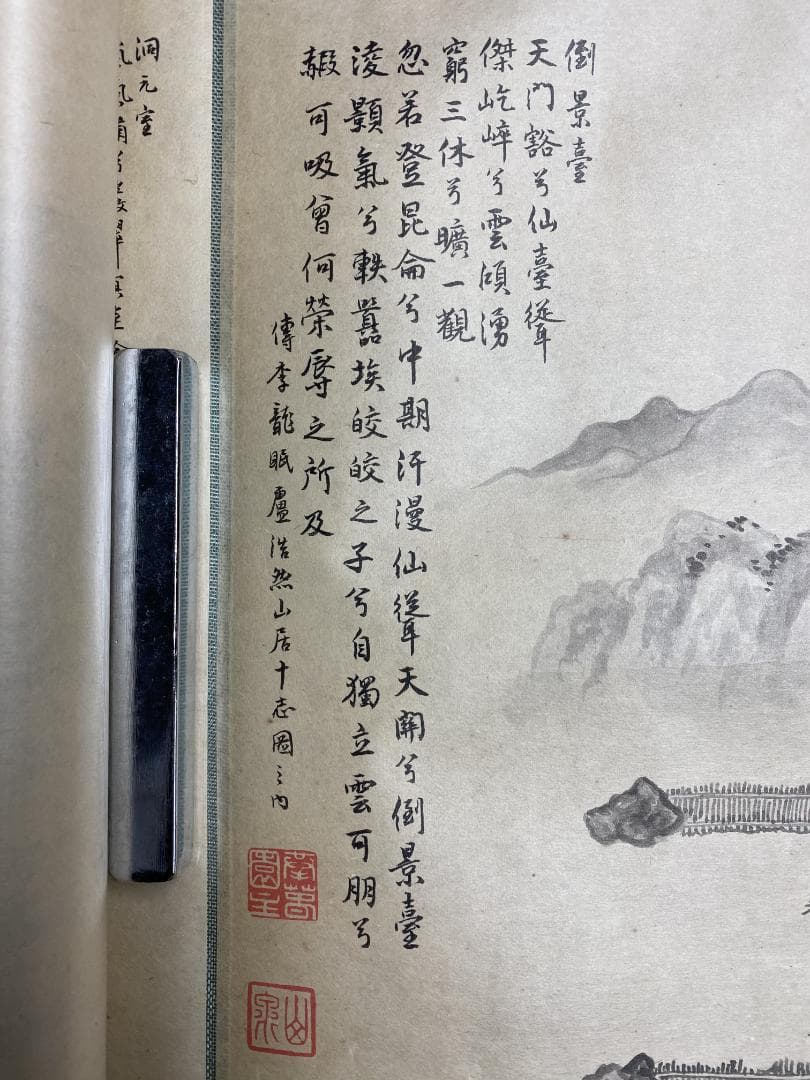 倒景臺
天門豁兮仙臺聳
傑屹崪兮雲頃湧
窮三休兮曠一觀
忽若登昆侖兮中期汗漫仙聳天開兮倒景臺
淩顥氣兮軼囂埃皎皎之子兮自獨立雲可朋兮
霞可吸曾何榮辱之所及
傳李龍眠盧浩然山居十志圖之內
山泉
洞元室